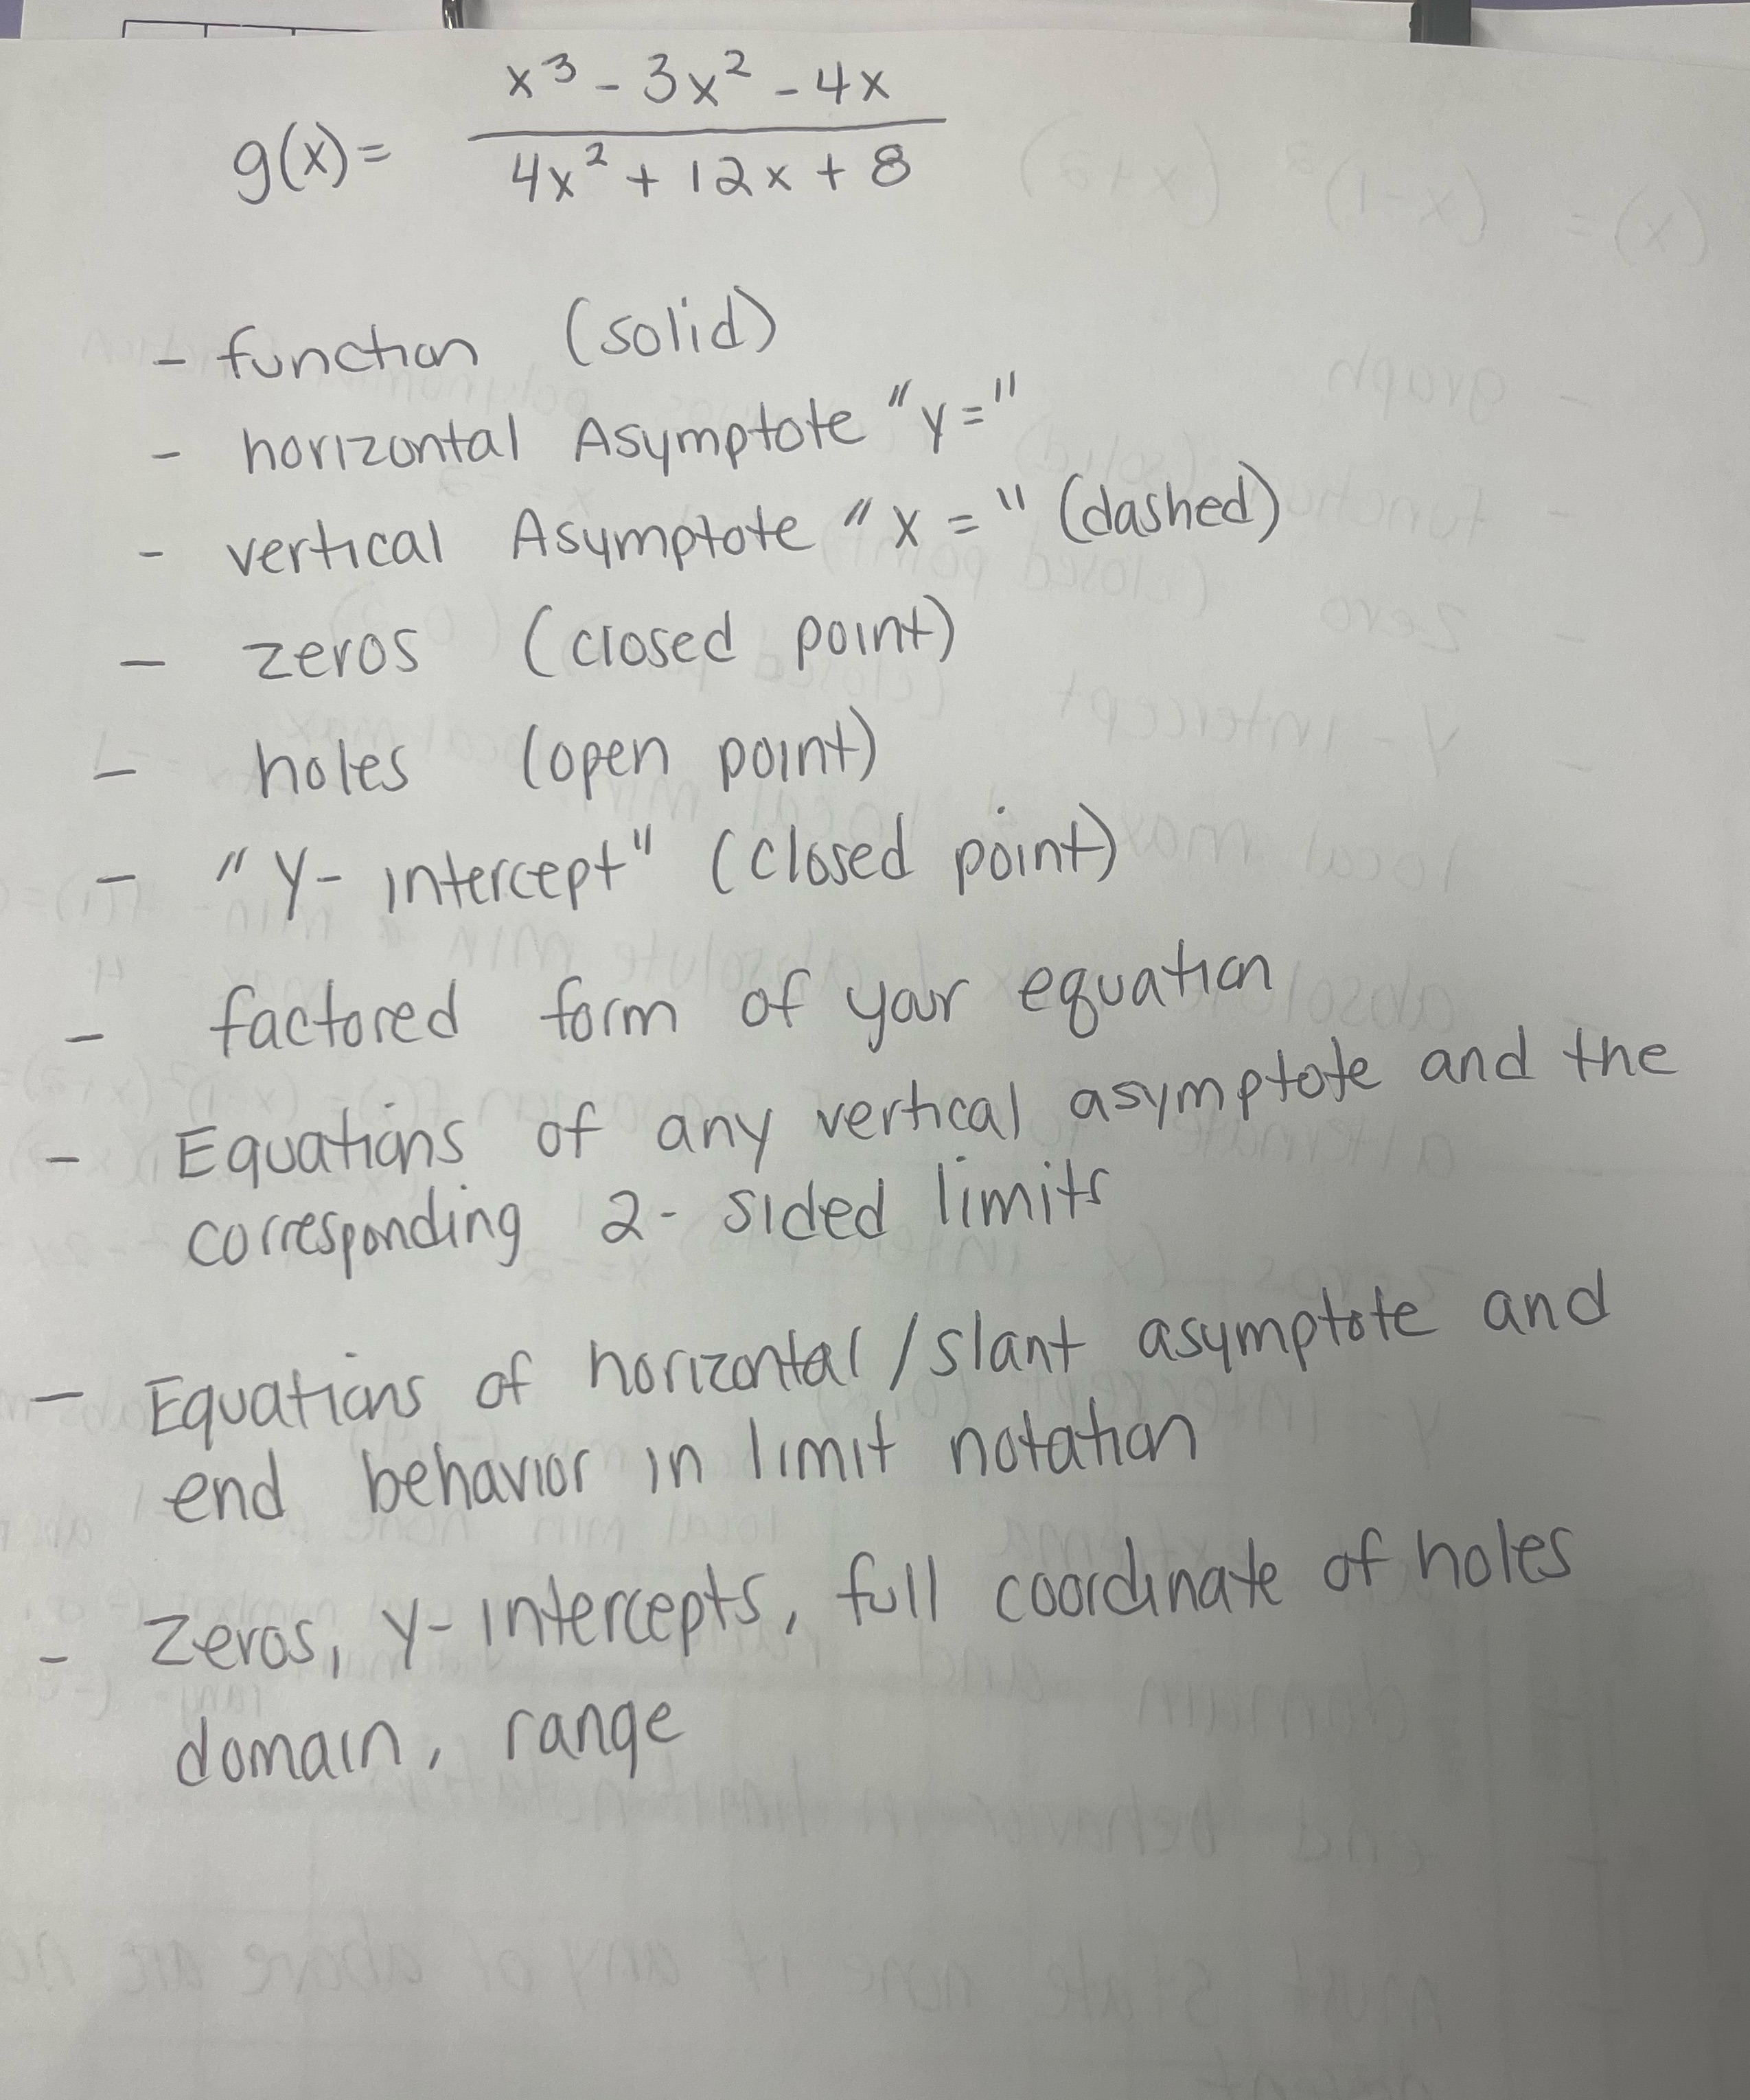 g(x)= x³ - 3x² - 4x / 4x² + 12x + 8
- function (solid)
- horizontal Asymptote "y="
- vertical Asymptote "x =" (dashed)
- zeros (closed point)
- holes (open point)
- "Y- intercept" (closed point)
- factored form of your equation
- Equations of any vertical asymptote and the
corresponding 2- sided limits
- Equations of horizontal/slant asymptote and
end behavior in limit notation
- zeros, y-intercepts, full coordinate of holes
domain, range